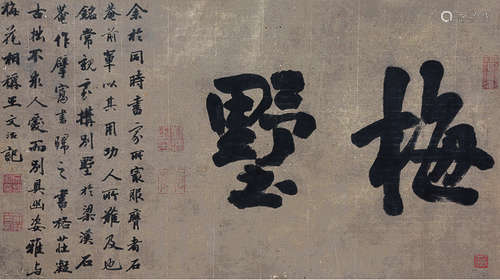 梅墅
余於同時書家所最服膺者石
菴前輩以其用功人所難及也
銘常觀察構別墅於梁溪石
菴作擘窠書歸之書格莊凝
古拙不求人愛而別具幽姿雅與
梅花相稱王文治記